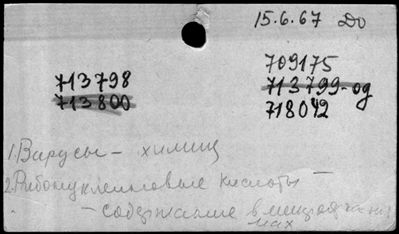 15.6.67 До
713798
713800
709175
713799-од
718042
1. Вирусы - химия
2. Рибонуклеиновые кислоты -
- содержание в